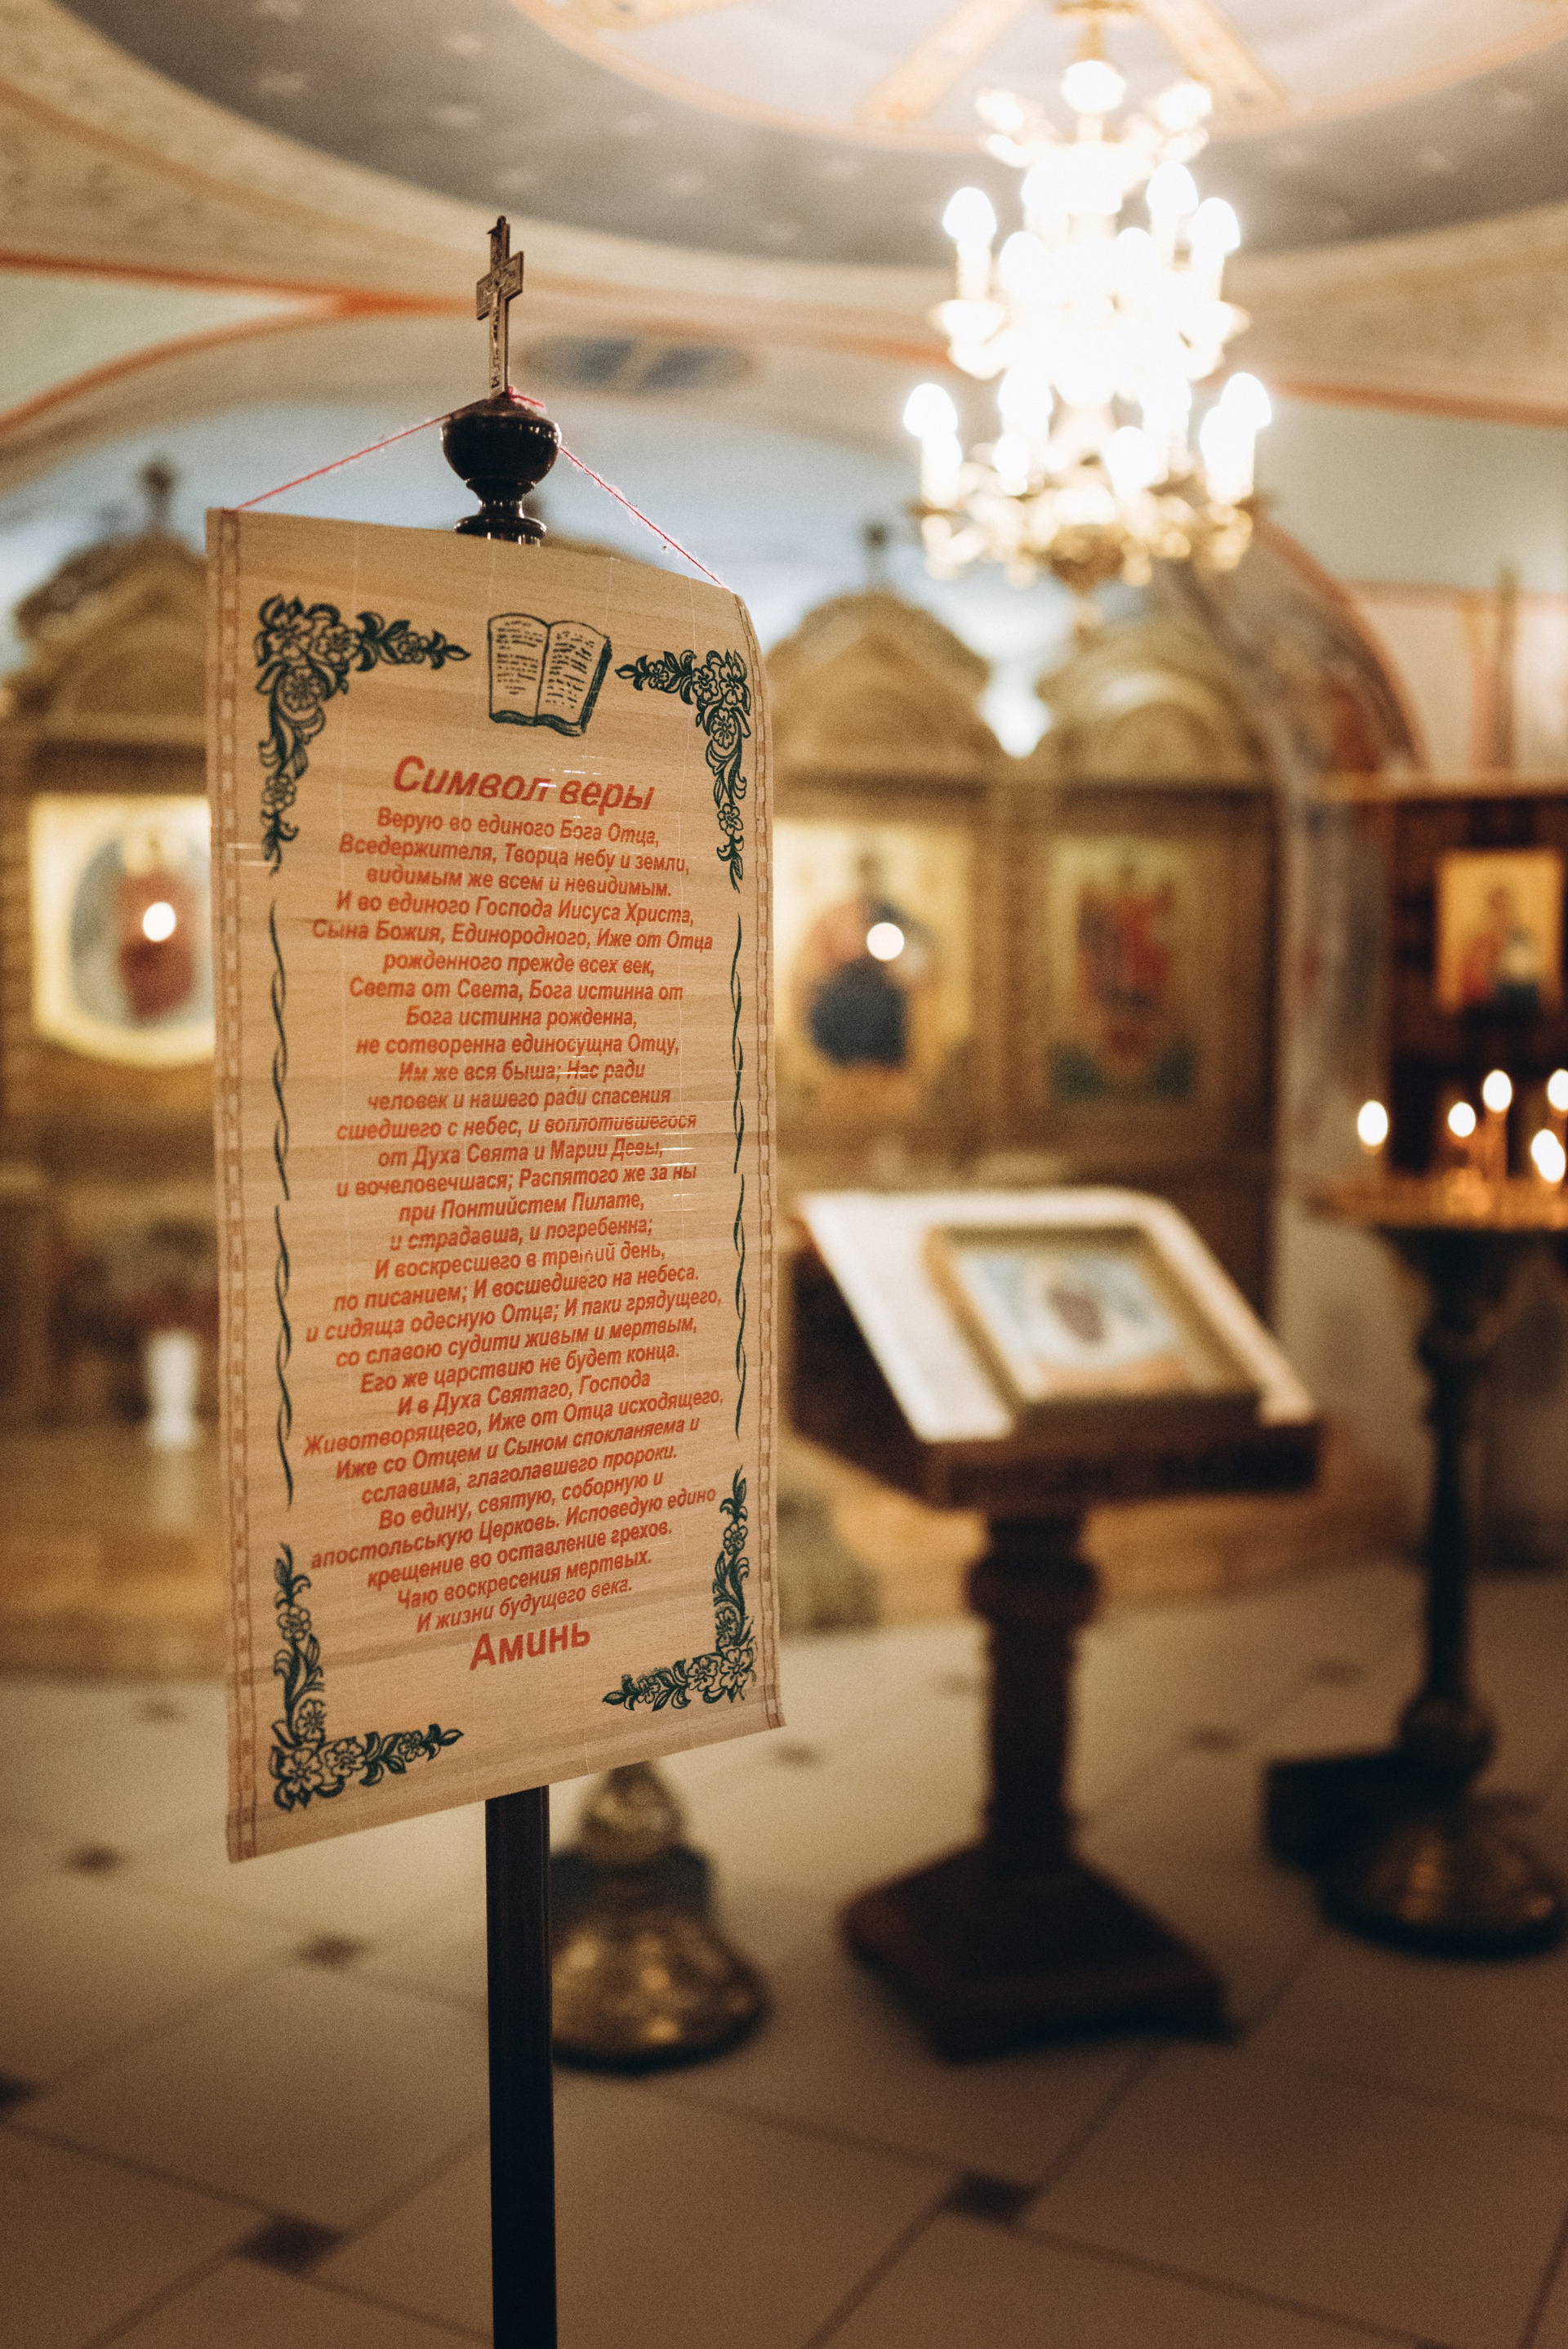 Символ веры
Верую во единого Бога Отца,
Вседержителя, Творца небу и земли,
видимым же всем и невидимым.
И во единого Господа Иисуса Христа,
Сына Божия, Единородного, Иже от Отца
рожденного прежде всех век,
Света от Света, Бога истинна от
Бога истинна рожденна,
не сотворенна единосущна Отцу,
Им же вся быша; Нас ради
человек и нашего ради спасения
сшедшего с небес, и воплотившегося
от Духа Свята и Марии Девы,
и вочеловечшася; Распятого же за ны
при Понтийстем Пилате,
и страдавша, и погребенна;
И воскресшего в третий день,
по писанием; И восшедшего на небеса.
и сидяща одесную Отца; И паки грядущего,
со славою судити живым и мертвым,
Его же царствию не будет конца.
И в Духа Святаго, Господа
Животворящего, Иже от Отца исходящего,
Иже со Отцем и Сыном спокланяема и
сславима, глаголавшего пророки.
Во едину, святую, соборную и
апостольськую Церковь. Исповедую едино
крещение во оставление грехов.
Чаю воскресения мертвых.
И жизни будущего века.
Аминь